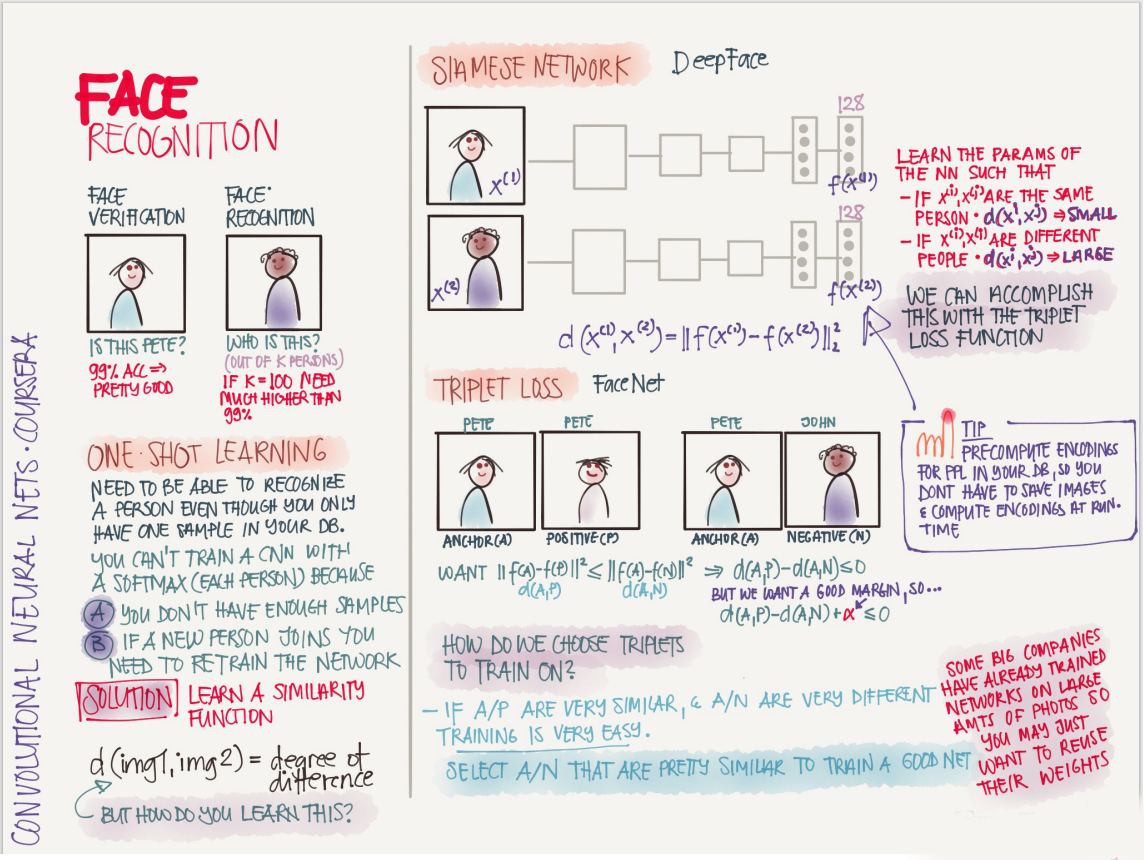 CONVOLUTIONAL NEURAL NETS · COURSERA
FACE
RECOGNITION
FACE
VERIFICATION
IS THIS PETE?
99% ACC ⇒
PRETTY GOOD
FACE·
RECOGNITION
WHO IS THIS?
(OUT OF K PERSONS)
IF K=100 NEED
MUCH HIGHER THAN
99%
ONE·SHOT LEARNING
NEED TO BE ABLE TO RECOGNIZE
A PERSON EVEN THOUGH YOU ONLY
HAVE ONE SAMPLE IN YOUR DB.
YOU CAN'T TRAIN A CNN WITH
A SOFTMAX (EACH PERSON) BECAUSE
A YOU DON'T HAVE ENOUGH SAMPLES
B IF A NEW PERSON JOINS YOU
NEED TO RETRAIN THE NETWORK
SOLUTION LEARN A SIMILARITY
FUNCTION
d(img1,img2) = degree of
difference
BUT HOW DO YOU LEARN THIS?
SIAMESE NETWORK DeepFace
128
x⁽¹⁾
f(x⁽¹⁾)
128
x⁽²⁾
f(x⁽²⁾)
d(x⁽¹⁾,x⁽²⁾)=||f(x⁽¹⁾)-f(x⁽²⁾)||₂²
LEARN THE PARAMS OF
THE NN SUCH THAT
- IF x⁽ⁱ⁾,x⁽ʲ⁾ ARE THE SAME
PERSON · d(xⁱ,xʲ) ⇒ SMALL
- IF x⁽ⁱ⁾,x⁽ʲ⁾ ARE DIFFERENT
PEOPLE · d(xⁱ,xʲ) ⇒ LARGE
WE CAN ACCOMPLISH
THIS WITH THE TRIPLET
LOSS FUNCTION
TIP
PRECOMPUTE ENCODINGS
FOR PPL IN YOUR DB, SO YOU
DONT HAVE TO SAVE IMAGES
& COMPUTE ENCODINGS AT RUN-
TIME
TRIPLET LOSS FaceNet
PETE PETE PETE JOHN
ANCHOR(A) POSITIVE(P) ANCHOR(A) NEGATIVE(N)
WANT ||f(A)-f(P)||² ≤ ||f(A)-f(N)||² ⇒ d(A,P)-d(A,N)≤0
d(A,P) d(A,N) BUT WE WANT A GOOD MARGIN, SO...
d(A,P)-d(A,N)+α ≤0
HOW DO WE CHOOSE TRIPLETS
TO TRAIN ON?
- IF A/P ARE VERY SIMILAR, & A/N ARE VERY DIFFERENT
TRAINING IS VERY EASY.
SELECT A/N THAT ARE PRETTY SIMILAR TO TRAIN A GOOD NET
SOME BIG COMPANIES
HAVE ALREADY TRAINED
NETWORKS ON LARGE
AMTS OF PHOTOS SO
YOU MAY JUST
WANT TO REUSE
THEIR WEIGHTS